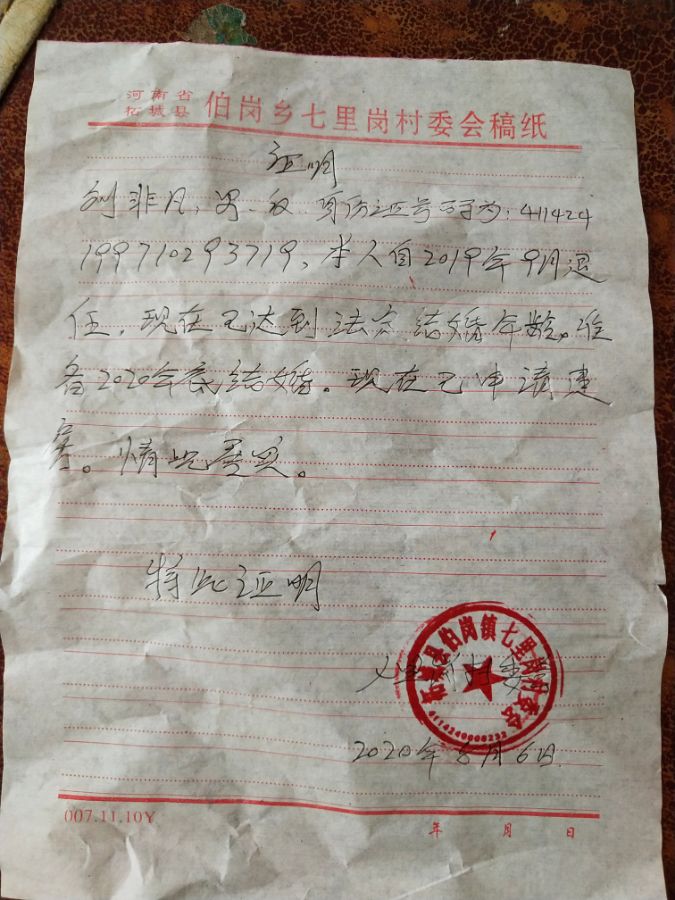 河南省
柘城县 伯岗乡七里岗村委会稿纸
证明
刘非凡，男，汉，身份证号码为：411424
199710293719，本人自2019年9月退
伍，现在已达到法定结婚年龄。准
备2020年底结婚。现在已申请建
房。情况属实。
特此证明
七里岗村委会
柘城县伯岗镇七里岗村委会
4114240006232
2020年6月6日.
007.11.10Y
年 月 日